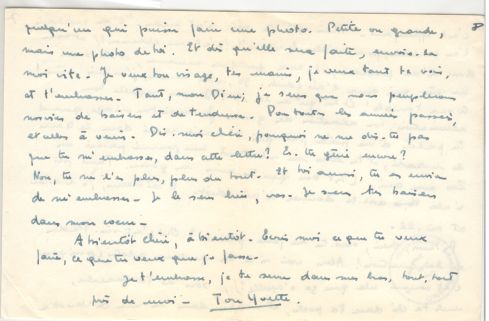 quelqu'un qui puisse faire une photo. Petite ou grande, 8
mais une photo de toi. Et dès qu'elle sera faite, envoie-la
moi vite. Je veux ton visage, tes mains, je veux tout te voir,
et t'embrasser. Tant, mon Dieu, je sens que nous
de baisers et de tendresse. Pour toutes les années passées,
et celles à venir. Dis-moi chéri, pourquoi ne me dis-tu pas
que tu m'embrasses, dans cette lettre? Es-tu gêné encore?
Non, tu ne l'es plus, plus du tout. Et toi aussi, tu as envie
de m'embrasser. Je le sens bien, vas. Je sens tes baisers
dans mon coeur.
A bientôt chéri, à bientôt. Ecris moi, ce que tu veux
faire, ce que tu veux que je fasse.
Je t'embrasse, je te serre dans mes bras, tout, tout
près de moi - Ton Yvette.